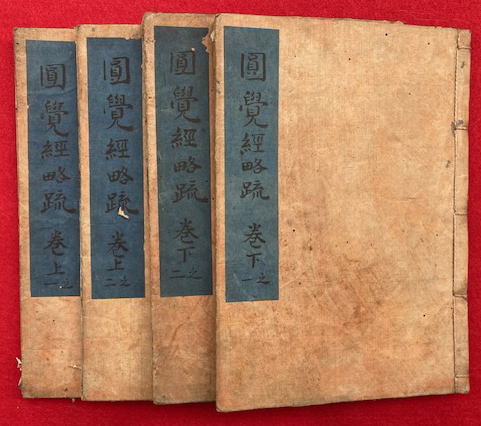 圓覺經略疏 卷上之一
圓覺經略疏 卷上之二
圓覺經略疏 卷下之二
圓覺經略疏 卷下之一